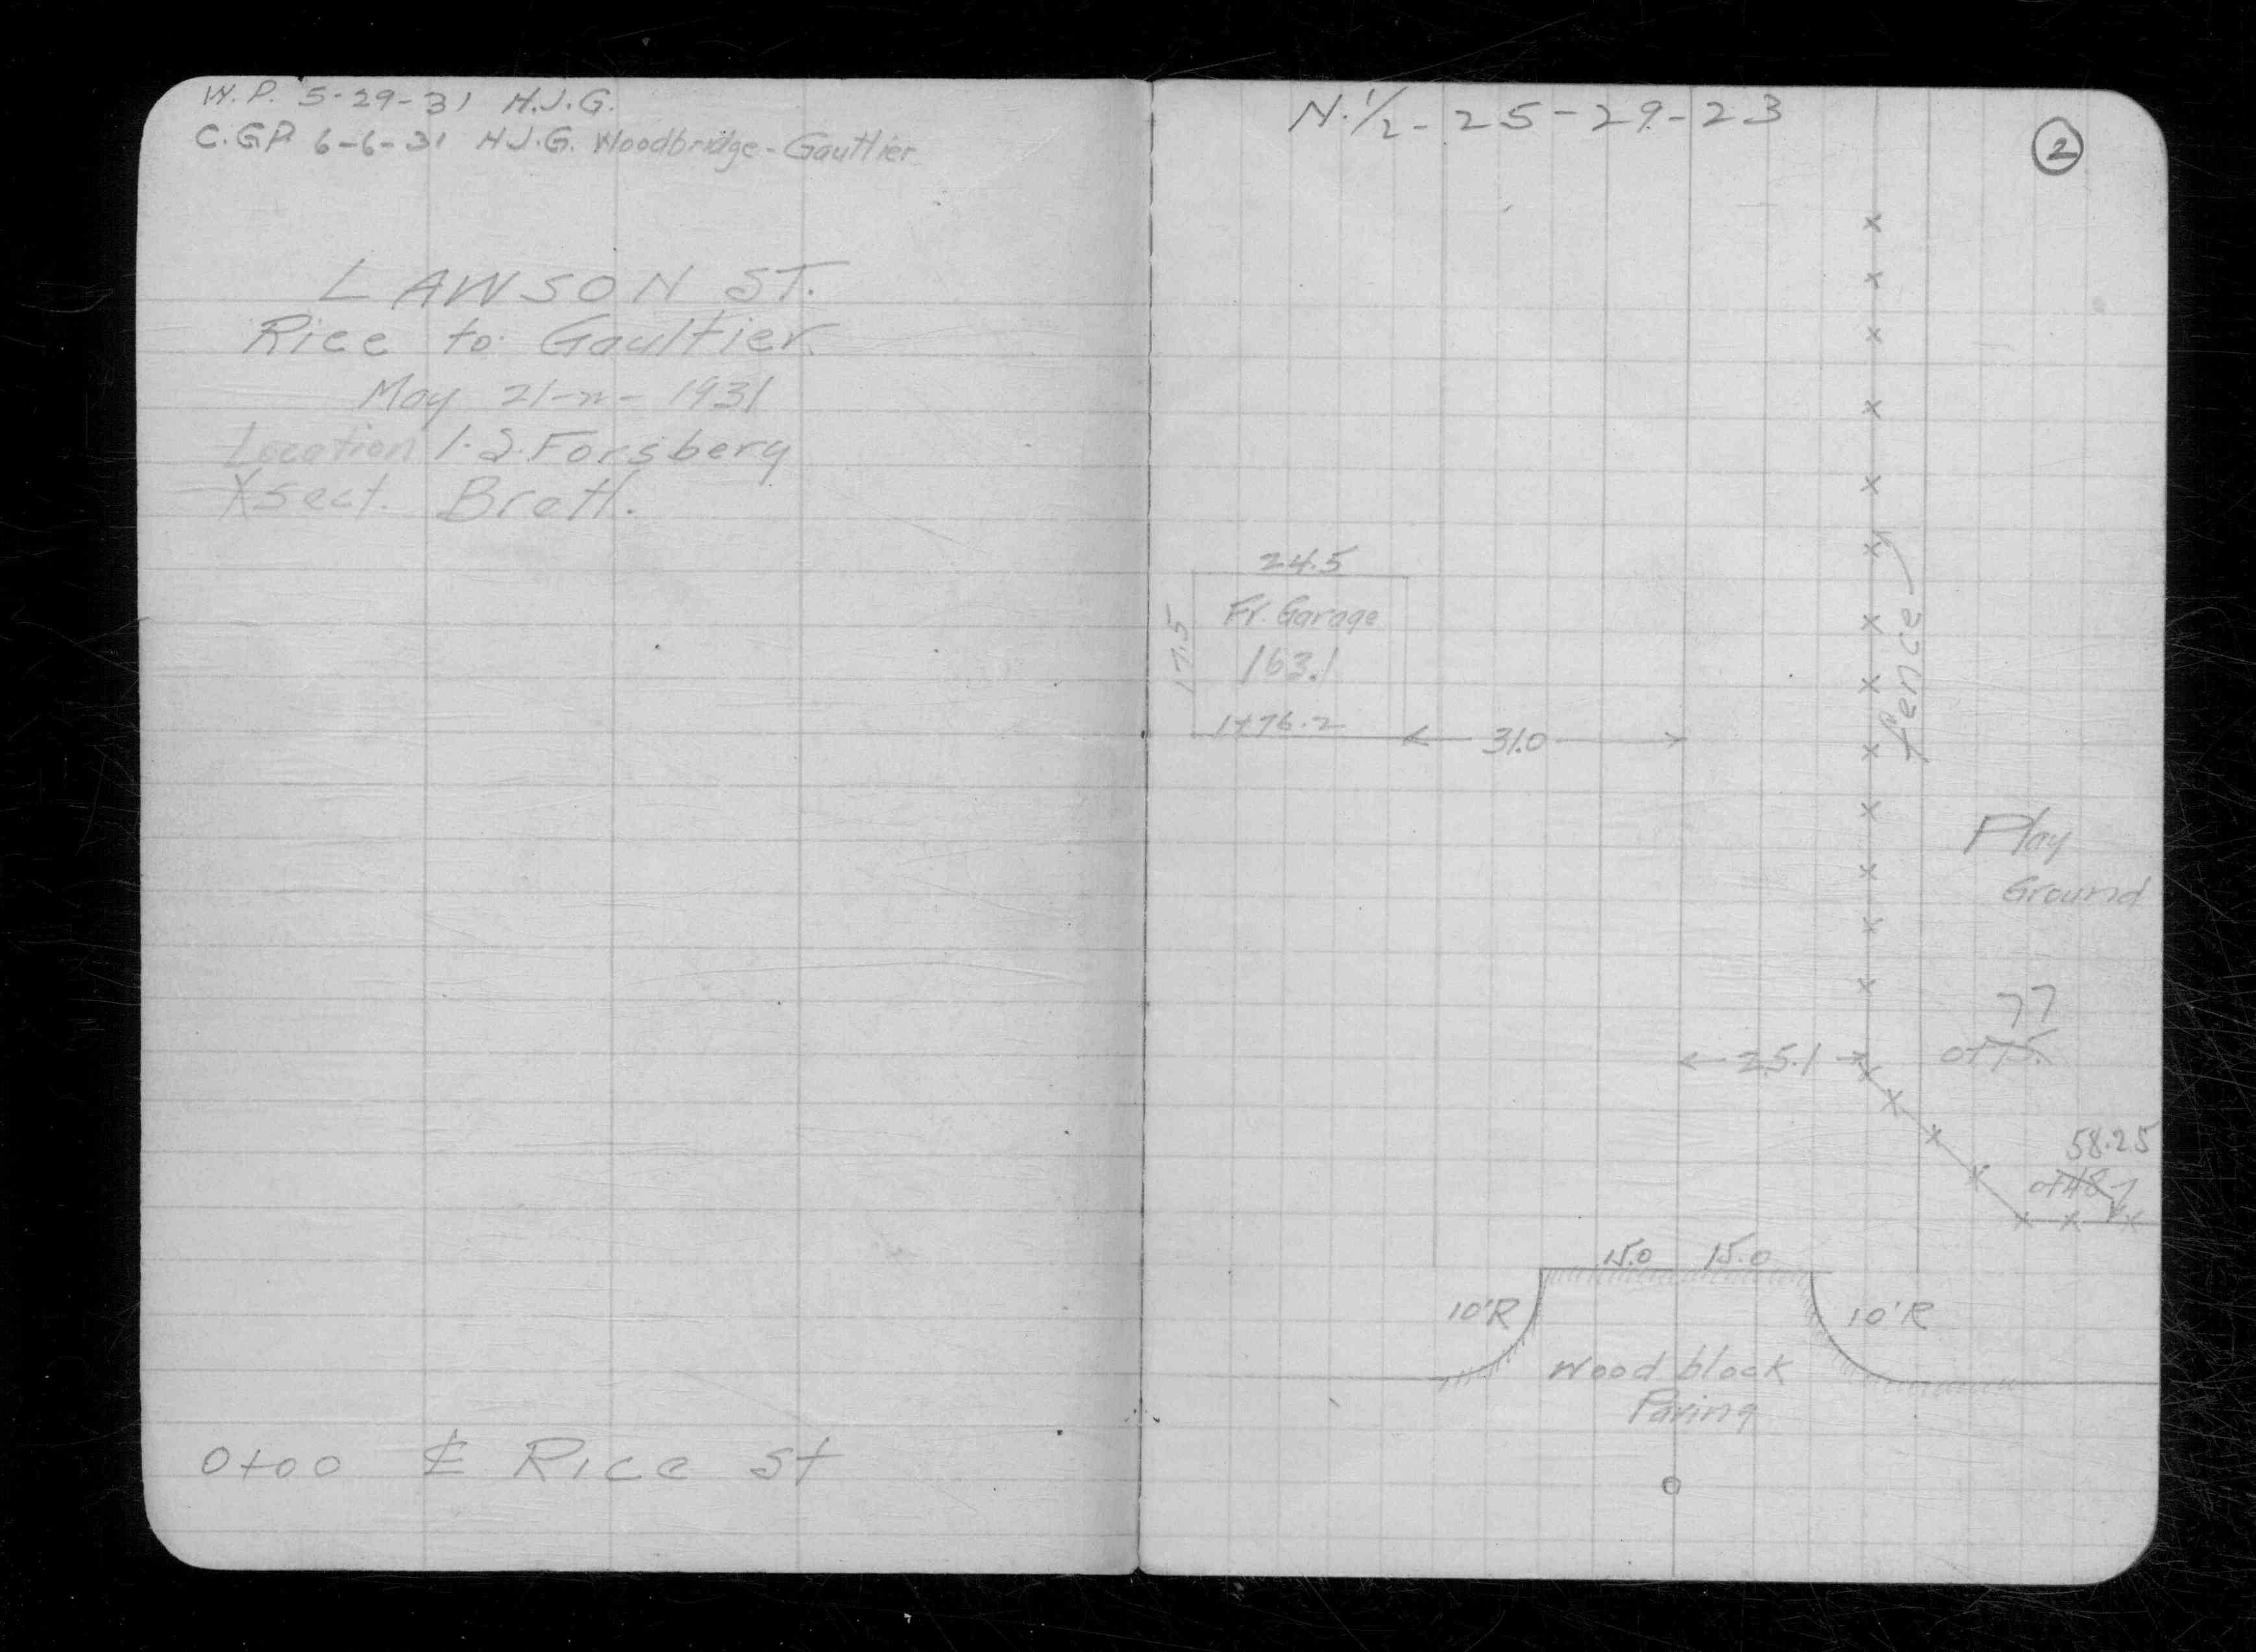 W.P. 5-29-31 H.J.G.
C.G.P. 6-6-31 H.J.G. Woodbridge-Gaultier
LAWSON ST.
Rice to Gaultier.
May 21-n- 1931
Location I.S. Forsberg
Xsect. Brett.
0+00 ℄ Rice St
N.1/2-25-29-23
2
24.5
17.5
Fr. Garage
163.1
1+76.2
31.0
fence
Play
Ground
77
0+75.
25.1
58.25
0+48.7
15.0 15.0
10'R
10'R
Wood block
Paving
0